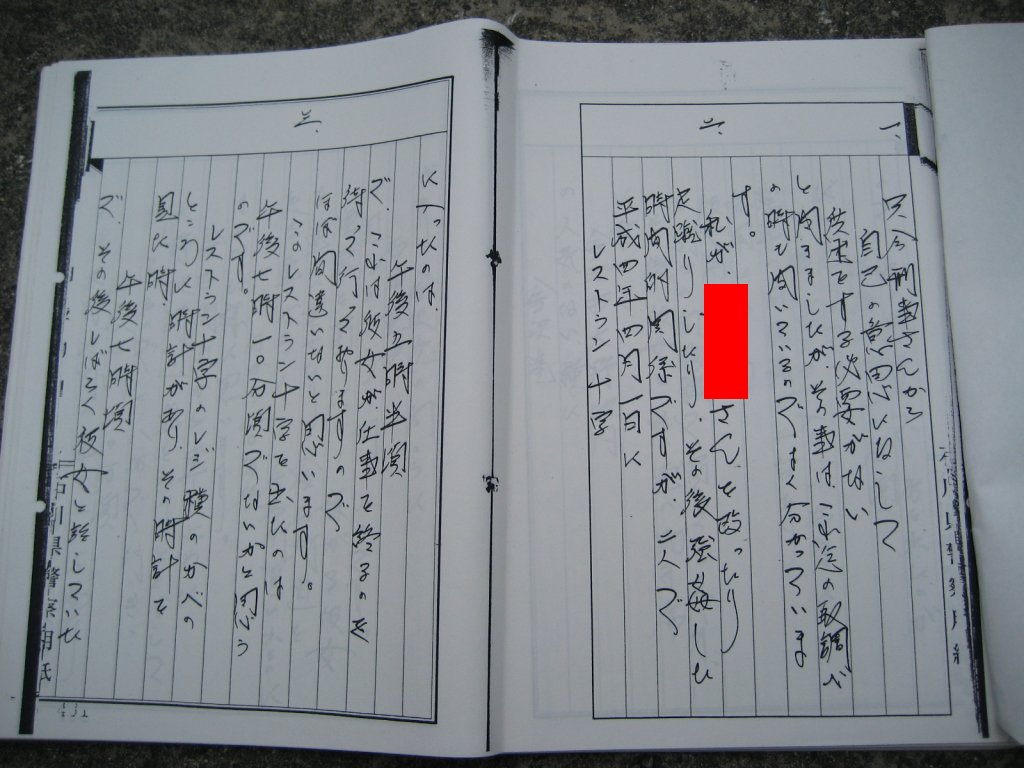 一、
只今刑事さんから
自己の意思に反して
供述をする必要がない
と聞きましたが、その事は、これ迄の取調べ
の時も聞いているのでよく分かっていま
す。
二、
私が、
さんを殴ったり
足蹴りしたり、その後強姦した
時間的関係ですが、二人で
平成四年四月一日に
レストラン十字
に入ったのは、
午後五時半頃
で、これは彼女が仕事を終るのを
待って行っておりますので
ほぼ間違いないと思います。
三、
このレストラン十字を出たのは
午後七時一〇分頃でないかと思う
のです。
レストラン十字のレジ横のかべの
ところに時計があり、その時計を
見た時
午後七時頃
で、その後しばらく彼女と話していた
石川県警察用紙